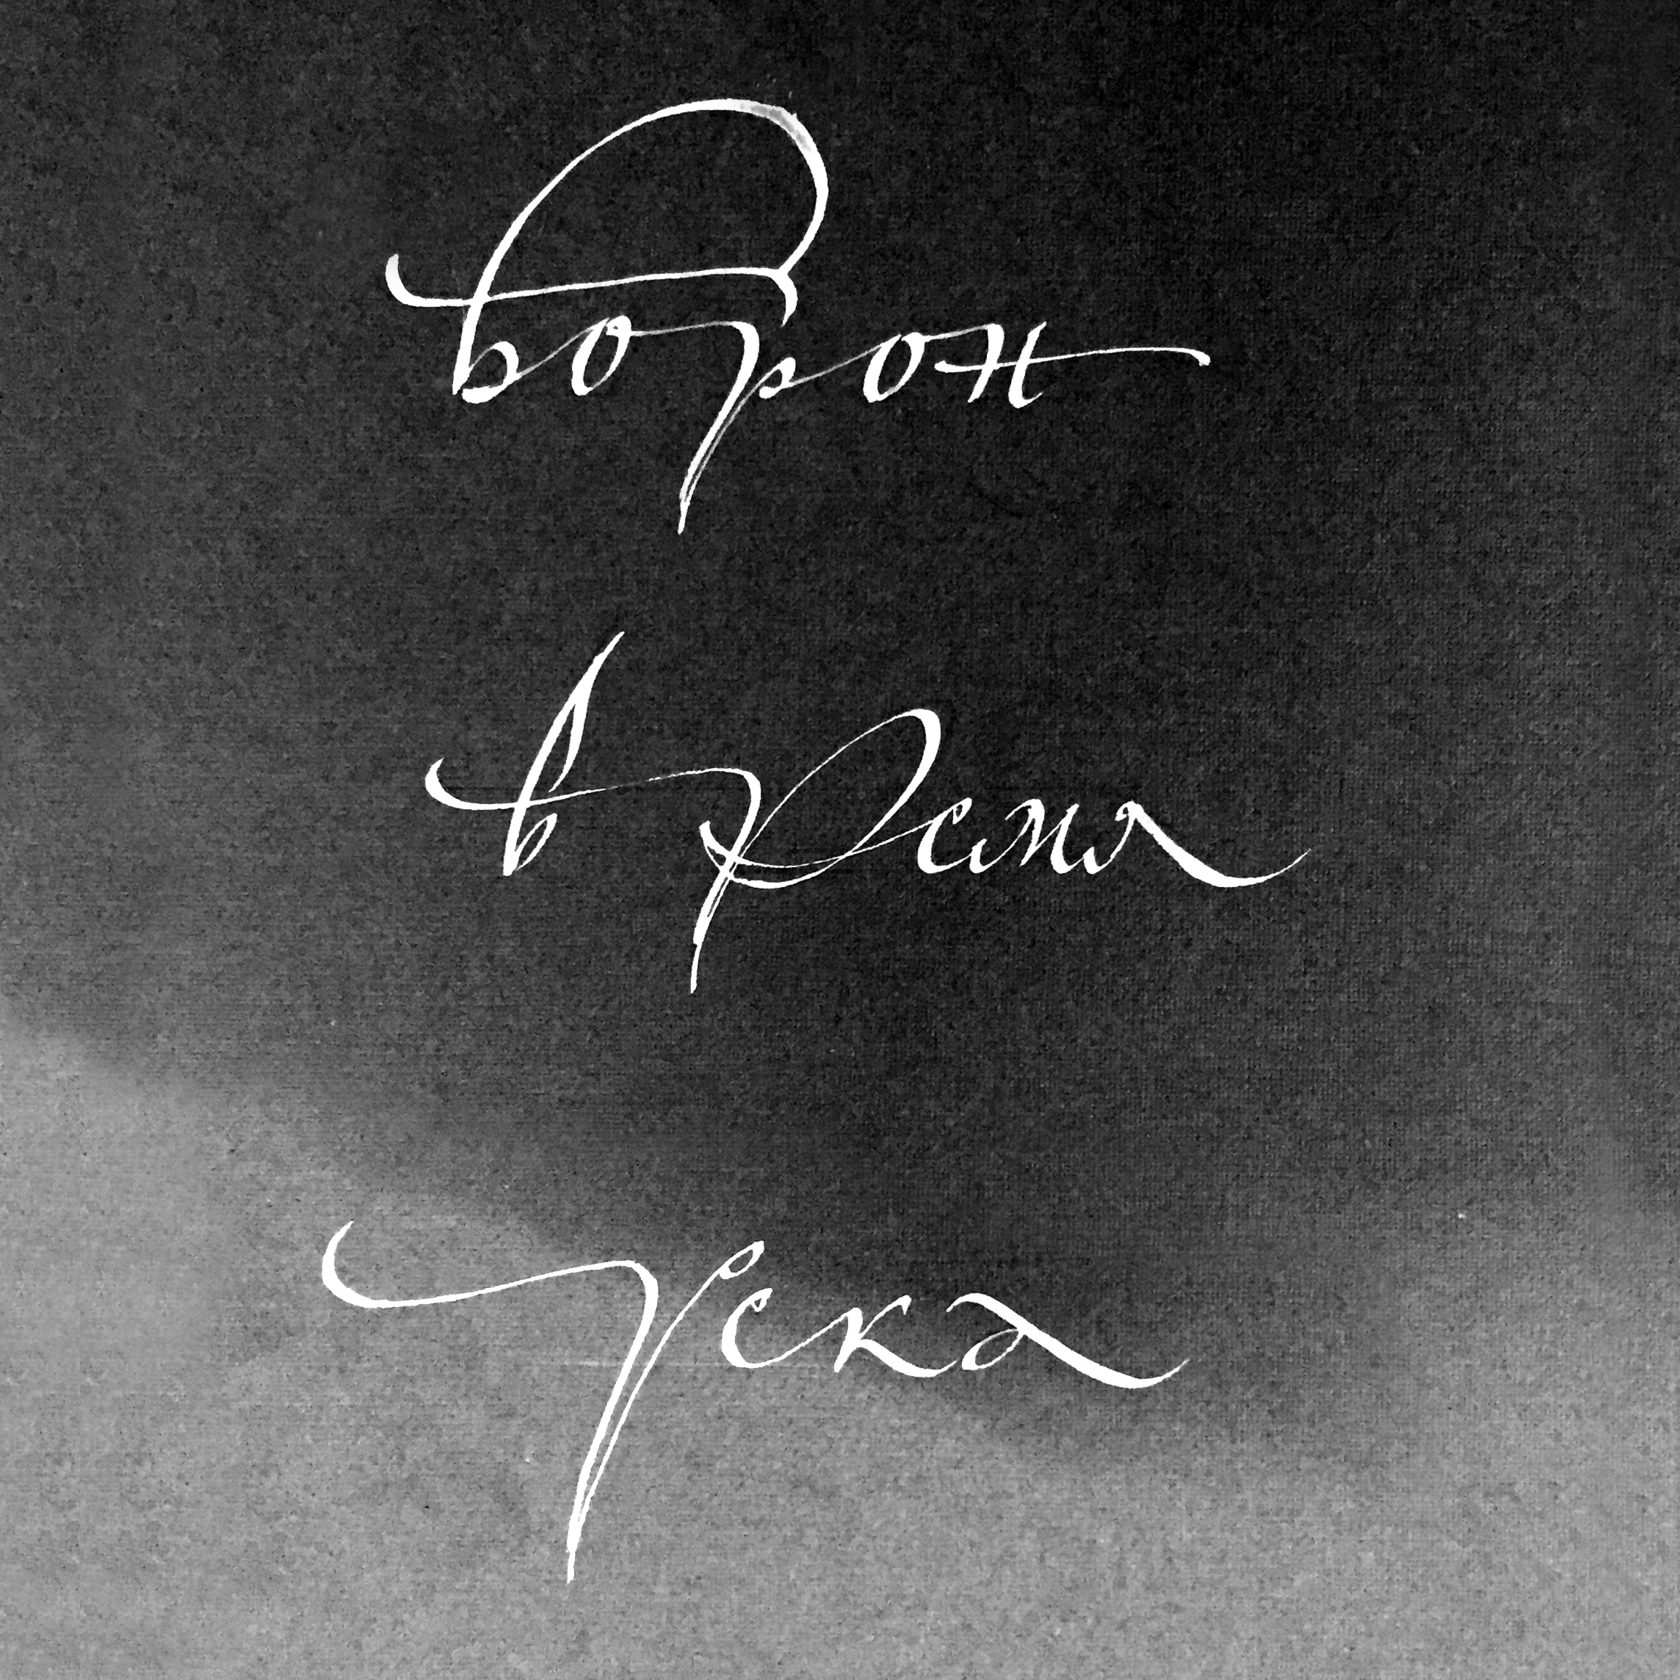 ворон
время
река